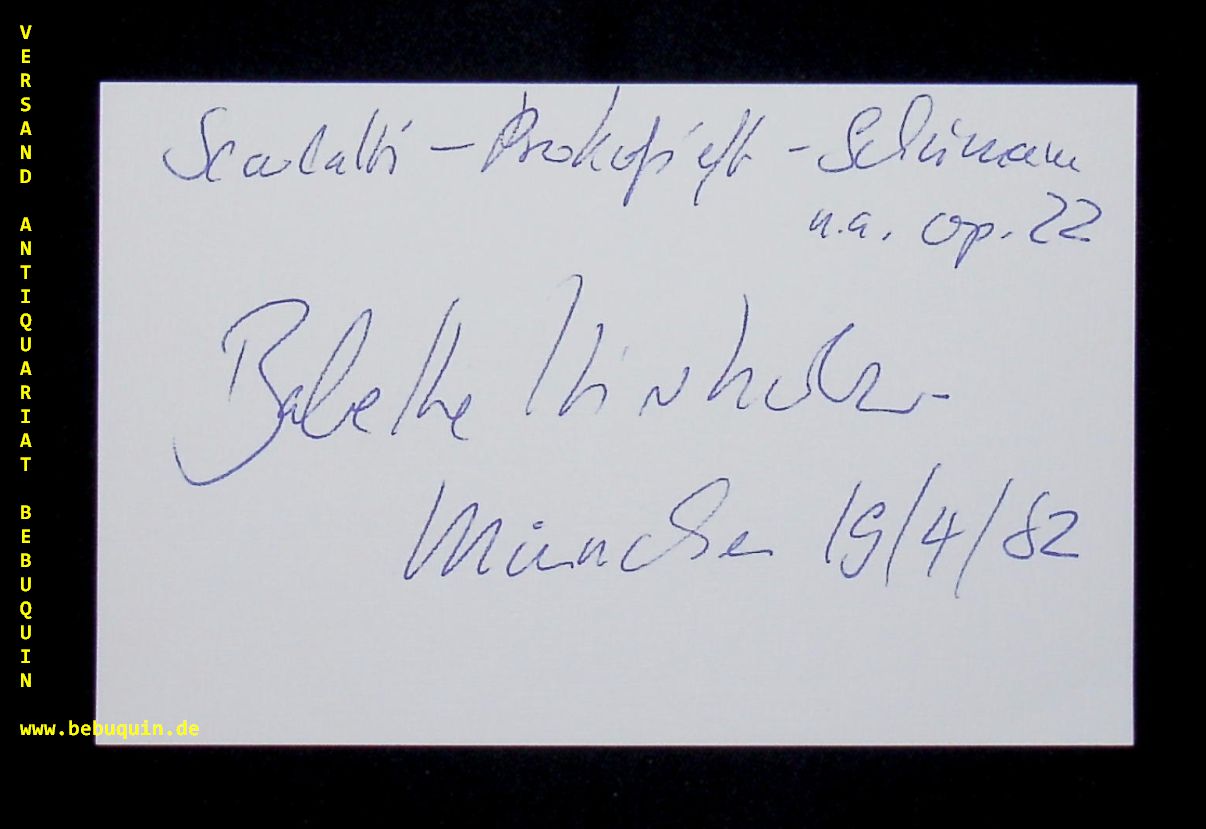 VERSAND ANTIQUARIAT BEBUQUIN
Scarlatti – Prokofieff – Schumann
u.a. op. 22
Babette Hierholzer
München 19/4/82
www.bebuquin.de